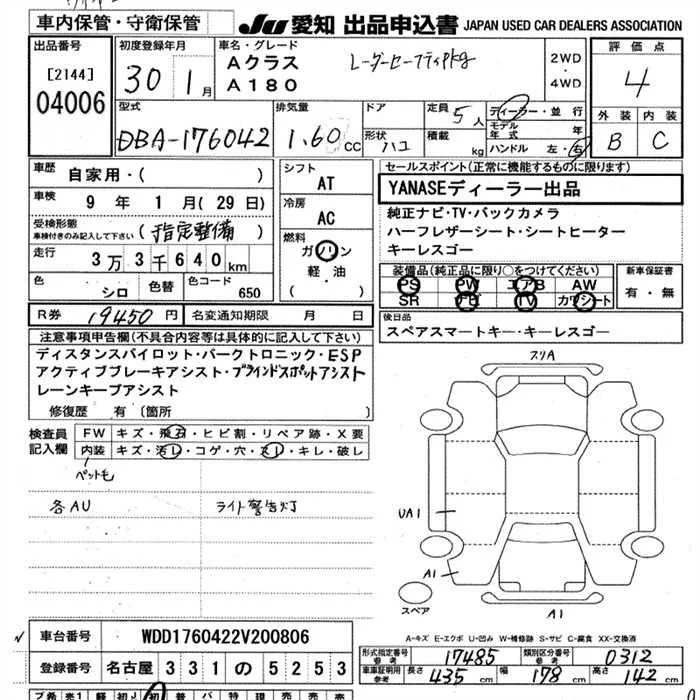 車内保管・守衛保管
JU 愛知 出品申込書 JAPAN USED CAR DEALERS ASSOCIATION
出品番号
[2144]
04006
初度登録年月
30 1月
車名・グレード
Aクラス
A180
レーダーセーフティPkg
2WD
・
4WD
評価点
4
外装 内装
B C
型式
DBA-176042
排気量
1.60 CC
ドア
形状 ハコ
定員 5人
積載 kg
ディーラー・並行
モデル年式 年
ハンドル 左・右
車歴
自家用・( )
車検
9年 1月(29日)
受検形態
車検付きのみ記入して下さい
(指定整備)
走行
3万3千640km
色 シロ
色替
色コード 650
シフト
AT
冷房
AC
燃料
ガソリン
軽・油
( )
セールスポイント(正常に機能するものに限ります)
YANASEディーラー出品
純正ナビ・TV・バックカメラ
ハーフレザーシート・シートヒーター
キーレスゴー
装備品(純正品に限り○をつけてください)
PS PW エアB AW
SR ナビ TV カワシート
新車保証書
有・無
R券 19450円
名変通知期限 月 日
後日品
スペアスマートキー・キーレスゴー
注意事項申告欄(不具合内容等は具体的に記入して下さい)
ディスタンスパイロット・パークトロニック・ESP
アクティブブレーキアシスト・ブラインドスポットアシスト
レーンキープアシスト
修復歴 有 (箇所 )
検査員
記入欄
FW キズ・飛石・ヒビ割・リペア跡・X要
内装 キズ・汚レ・コゲ・穴・スレ・キレ・破レ
ペット毛
各AU
ライト警告灯
スリA
UA1
A1
A1
スペア
A-キズ E-エクボ U-凹み W-補修跡 S-サビ C-腐食 XX-交換済
車台番号 WDD1760422V200806
登録番号 名古屋 331 の 5253
形式指定番号
参考
17485
類別区分番号
参考
0312
車車証明用
参考
長さ 435 cm
幅 178 cm
高さ 142 cm